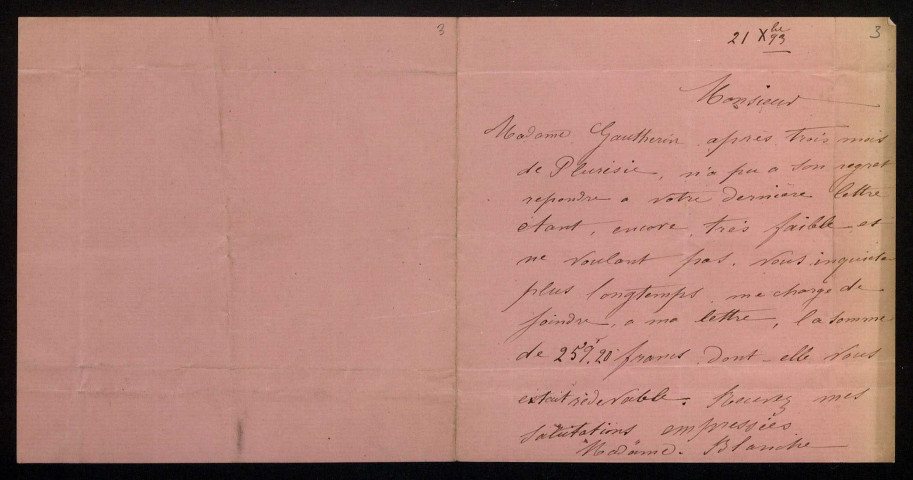 3
21 Xbre 93
3
Monsieur
Madame Gautherin après trois mois
de Plurésie, n'a pu a son regret
repondre a votre dernière lettre
étant, encore, très faible et
ne voulant pas. vous inquieter
plus longtemps me charge de
joindre, a ma lettre, la somme
de 259f.20 francs dont elle vous
estait redevable. Recevez mes
salutations empressées
Madame. Blanche